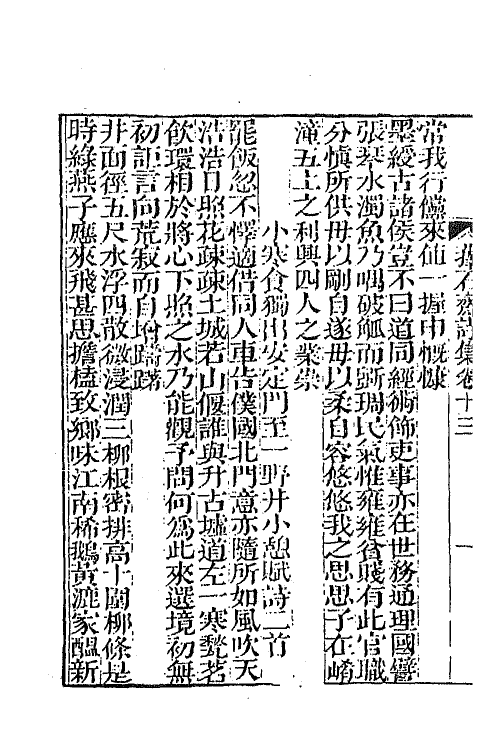 蘀石齋詩集卷十三 一
常我行儻來仙一握中慨慷
墨綬古諸侯豈不曰道同經術飾吏事亦在世務通理國譬
張琴水濁魚乃喁破觚而斲琱民氣惟雍雍省賤有此官職
分慎所供毋以剛自遂毋以柔自容悠悠我之思思子在崤
潼五土之利興四人之業崇
小寒食獨出安定門至一野井小憩賦詩二首
能飯忽不懌適借同人車告僕國北門意亦隨所如風吹天
浩浩日照花疎疎土城若山偃誰與升古墟道左一寒甃茗
飲環相於將心下照之水乃能觀予問何為此來選境初無
初詎言向荒寂而自增躊躇
井面徑五尺水浮四散微漫潤三柳根密排高十圍柳條是
時綠燕子應來飛甚思擔榼致鄉味江南稀鵝黃漉家醞新